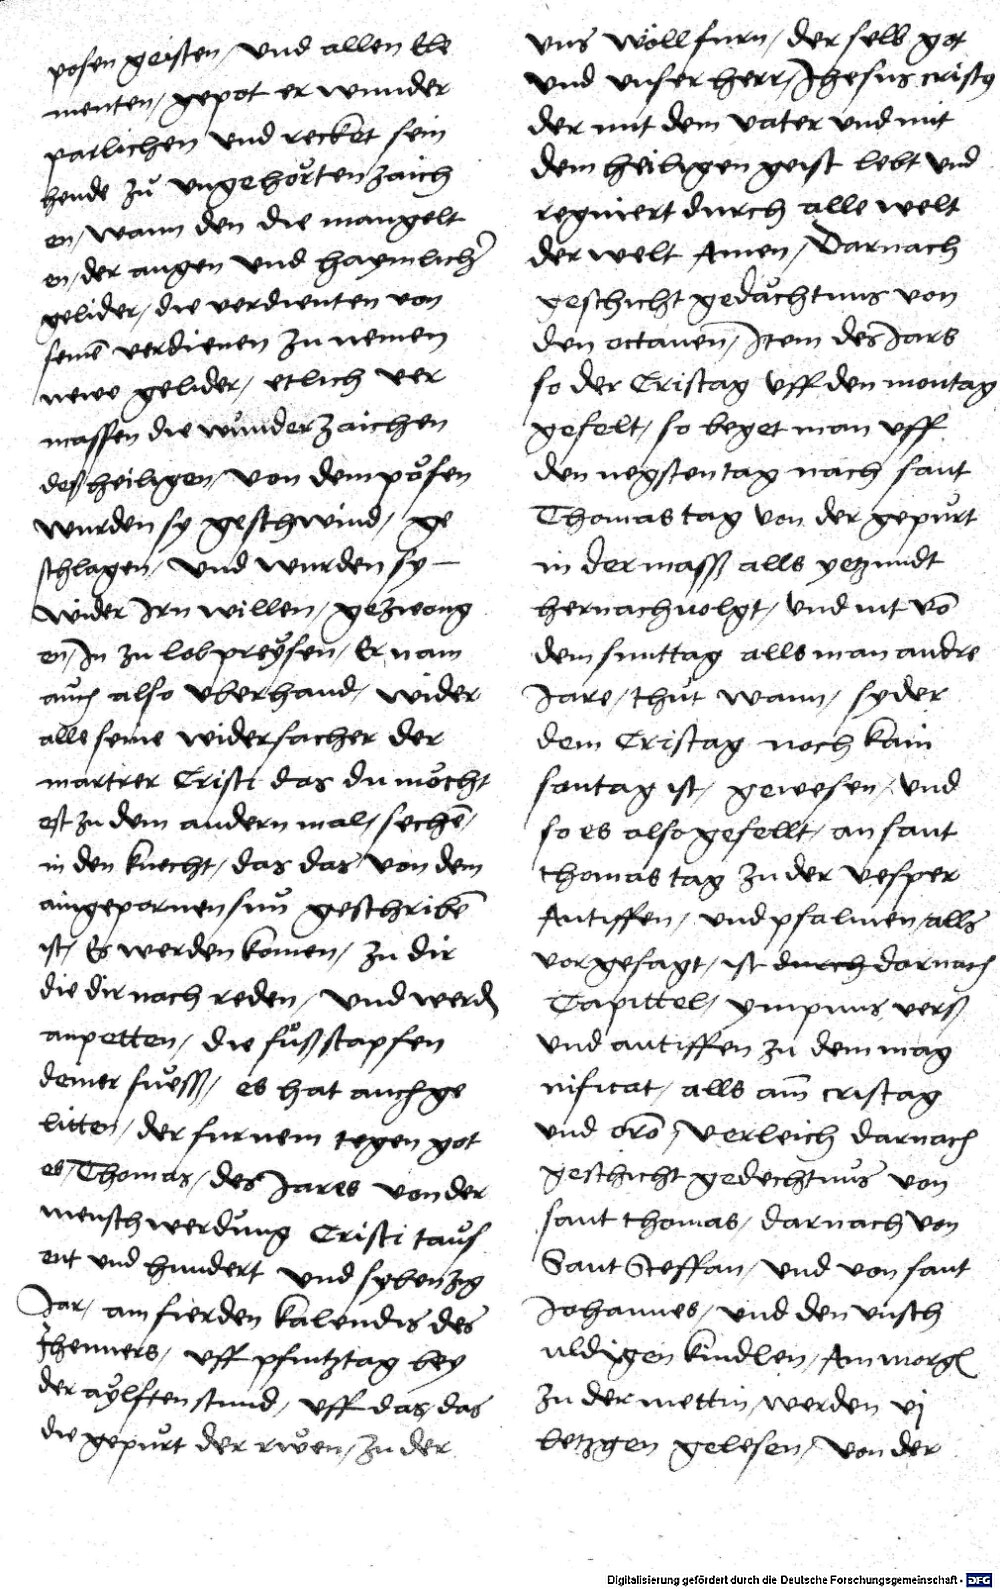 posen geisten / vnd allen Ele
menten / gepot er wunder
parlichen vnd recket sein
hende zů vngehörten zaich
en / wann den die mangelt
en / der augen vnd haymlich̄
gelider / die verdienten von
seinē verdienen zu nemen
newe gelider / etlich ver
massen die wunderzaichen
deß heiligen / von dem pösen
wurden sy geschwind / ge
schlagen / vnd wurden sy —
wider Irn willen / gezwong
en / In zu lobpreÿsen / Er nam
auch also vberhand / wider
alle seine widersacher der
martrer Cristi das du möcht
est zu dem andern mal / sechē /
in den knecht / das das von dem
aingepornen sun geschriben̄
ist / Es werden komen / zu dir
die dir nach reden / vnd werdn̄
anpetten / die fůßstapfen
deiner fuess / es hat auch ge
litten / der furnem tegen got
es / Thomas / des Jares von der
menschwerdůng Cristi taus
ent vnd hundert vnd sybenzig
Jar / am fierden kalendis des
Jhenners / vff pfintztag bey
der aÿlften stund / vff das / das
die gepurt der rwen / zu der
vns wöll furn / der selb got
vnd vnser herr / Jhesus cristus
der mit dem vater vnd mit
dem heiligen geist lebt vnd
regniert durch alle welt
der welt Amen / Darnach
geschicht gedächtnus von
den octauen / Item des Jars
so der Cristag vff den montag
gefelt / so beget man vff
den negsten tag nach sant
Thomas tag von der gepůrt
in der mass alls yetzundt
hernachuolgt / vnd nit vō
dem sunttag alls man andre
Jare / thůt wann / syder
dem Cristag noch kain
sontag ist / gewesen / vnd
so es also gefellt / an sant
thomas tag zu der vesper
Antiffen / vnd psalmen / alls
vor gesagt / ist durch darnach
Capittel / ympnus verß
vnd antiffen zu dem mag
nificat / alls am̄ cristag
vnd orō / Verleich darnach
geschicht gedechtnus von
sant thomas / darnach von
Sant Steffan / vnd von sant
Johannes / vnd den vnsch
uldigen kindlen / Am morgn̄
zu der mettin / werden vj
letzgen gelesen / von der
Digitalisierung gefördert durch die Deutsche Forschungsgemeinschaft - DFG